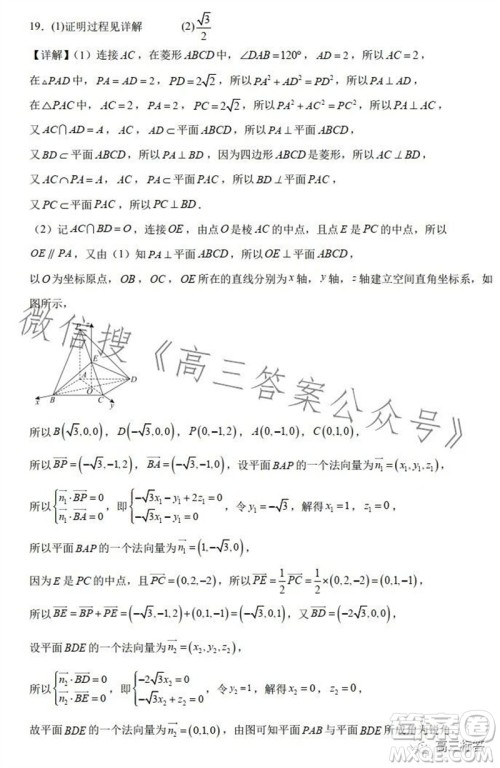 19．(1)证明过程见详解　(2)√3/2
【详解】（1）连接AC，在菱形ABCD中，∠DAB=120°，AD=2，所以AC=2，
在△PAD中，PA=AD=2，PD=2√2，所以PA²+AD²=PD²，所以PA⊥AD，
在△PAC中，AC=2，PA=2，PC=2√2，所以PA²+AC²=PC²，所以PA⊥AC，
又AC∩AD=A，AC，AD⊂平面ABCD，所以PA⊥平面ABCD，
又BD⊂平面ABCD，所以PA⊥BD，因为四边形ABCD是菱形，所以AC⊥BD，
又AC∩PA=A，AC，PA⊂平面PAC，所以BD⊥平面PAC，
又PC⊂平面PAC，所以PC⊥BD．
（2）记AC∩BD=O，连接OE，由点O是棱AC的中点，且点E是PC的中点，所以
OE∥PA，又由（1）知PA⊥平面ABCD，所以OE⊥平面ABCD，
以O为坐标原点，OB，OC，OE所在的直线分别为x轴，y轴，z轴建立空间直角坐标系，如
图所示，
z
E
A
D
O
B
C
x
y
所以B(√3,0,0)，D(-√3,0,0)，P(0,-1,2)，A(0,-1,0)，C(0,1,0)，
所以BP=(-√3,-1,2)，BA=(-√3,-1,0)，设平面BAP的一个法向量为n₁=(x₁,y₁,z₁)，
所以{n₁·BP=0 n₁·BA=0，即{-√3x₁-y₁+2z₁=0 -√3x₁-y₁=0，令y₁=-√3，解得x₁=1，z₁=0，
所以平面BAP的一个法向量为n₁=(1,-√3,0)，
因为E是PC的中点，且PC=(0,2,-2)，所以PE=1/2PC=1/2×(0,2,-2)=(0,1,-1)，
所以BE=BP+PE=(-√3,-1,2)+(0,1,-1)=(-√3,0,1)，又BD=(-2√3,0,0)，
设平面BDE的一个法向量为n₂=(x₂,y₂,z₂)，
所以{n₂·BD=0 n₂·BE=0，即{-2√3x₂=0 -√3x₂+z₂=0，令y₂=1，解得x₂=0，z₂=0，
故平面BDE的一个法向量为n₂=(0,1,0)，由图可知平面PAB与平面BDE所成角为锐角，
微信搜《高三答案公众号》
高三标答